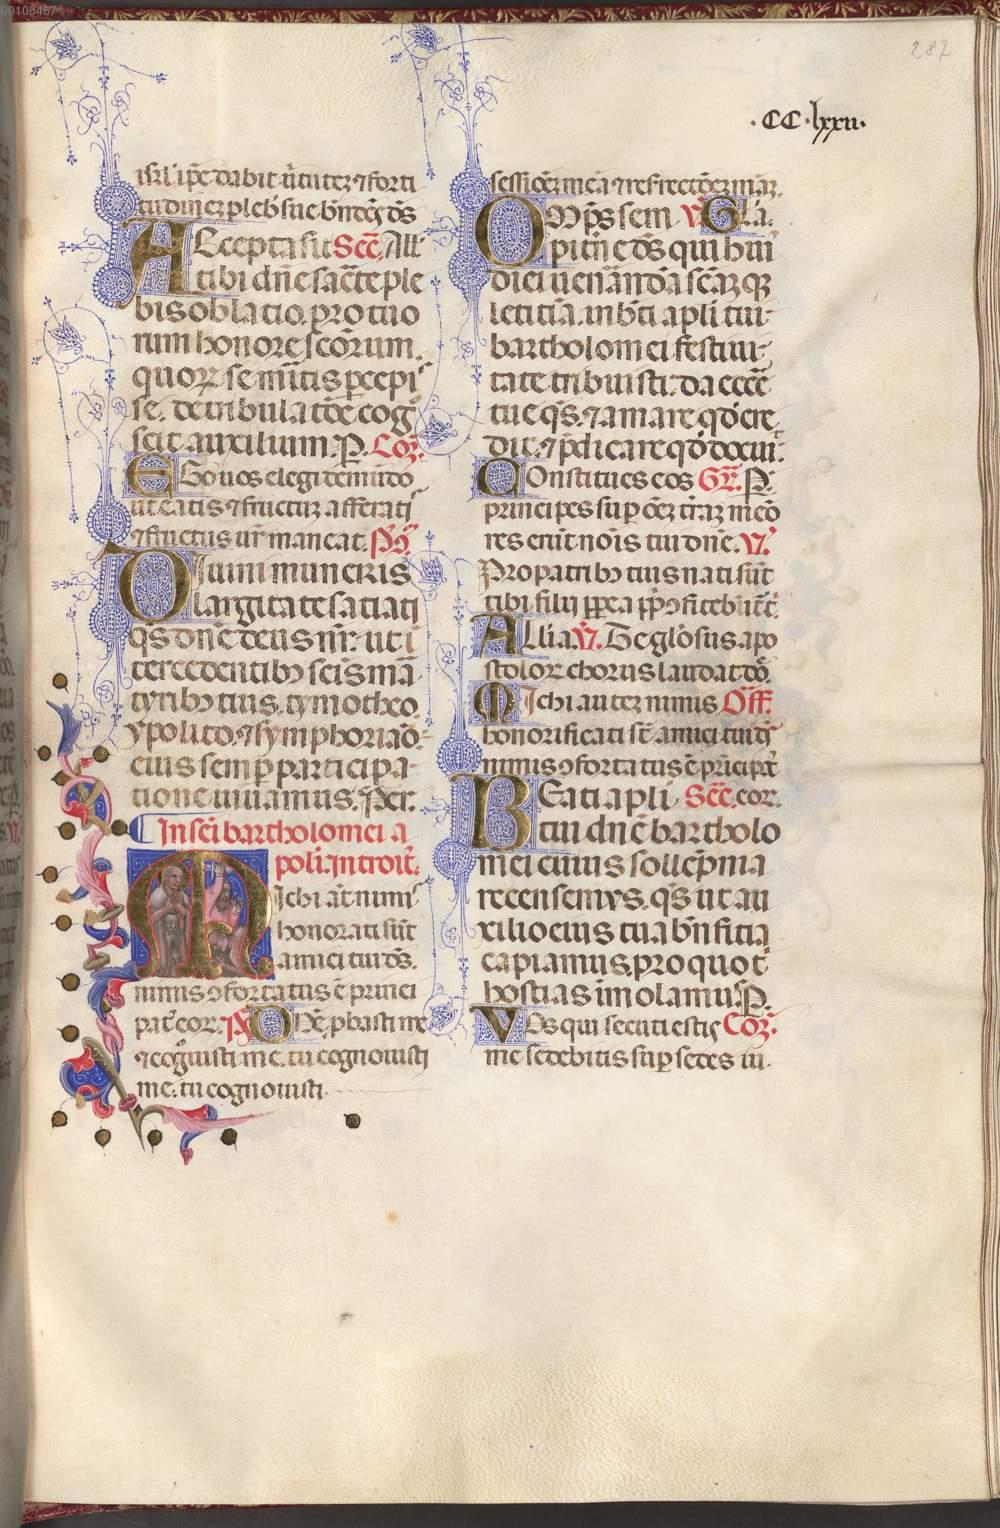 00108467
287
·CC·lxxii·
isrł ip̄e dabit ū̇tutez ⁊ forti
tudinez plebi sue bn̄dcs̄ ds̄
ACcepta sit Sec̄. All'
tibi dn̄e sac̄te ple
bis oblatio. pro tuo
rum honore sc̄orum.
quoꝝ se mītis p̱cepis
se. de tribulat̄ōe cog
scit auxilium. P̱. Coz̄.
EGo uos elegi de mūdo
ut eatis ⁊ fructuz afferatis
⁊ fructus ur̄ maneat. P̄9̄
DIuini muneris
largitate satiati
q̄s dn̄e deus nr̄. ut i
tercedentibꝰ sc̄is mā
tyribꝰ tuis. tymotheo
ypolito. ⁊ symphoriāo.
eius semp̱ participa
tione uiuamus. P̱er.
In sc̄i bartholomei a
poli. introit̄.
MIchi āt nimis
honorati sūt
amici tui ds̄.
nimis ꝯfortatus ē princi
pat' eoꝝ. p̄s̄ Dn̄e. p̱basti me
⁊ cog̊uisti me. tu cognouisti
me. tu cognouisti.
sessiōez meā ⁊ resrectiōez meā.
OMp̄s sem V̄. Gl'a.
pit̄ne ds̄ qui hui
diei uenānda sc̄āzqꝫ
letitia. in bt̄i apl̄i tui
bartholomei festiui
tate tribuisti. da ecc̄e
tue q̄s. ⁊ amare qd̄ cre
dit. ⁊ p̄dicare qd̄ docuit.
COnstitues eos Gr̄. P̱.
principes sup̱ oēz t̄raz mēo
res erūt nōīs tui dn̄e. V̄.
Pro patribꝰ tuis nati sūt
tibi filij ꝓpt̄ea pp̄l̄i ꝯfitebūt̄ t̄.
ALl'ia. V̄. Te gl'osus apo
stoloꝝ chorus laudat dō.
MIchi autez nimis Off̄.
honorificati sūt amici tui ds̄
nimis ꝯfortatus ē prīcipat̄
BEati apl̄i Sec̄. eoꝝ.
tui dn̄e bartholo
mei cuius sollēpnia
recensemꝰs. q̄s ut au
xilio eius tua bn̄ficia
capiamus. pro quo t'
hostias imolamus. P̱.
VOs qui secuti estis Coz̄.
me sedebitis sup̱ sedes iu.